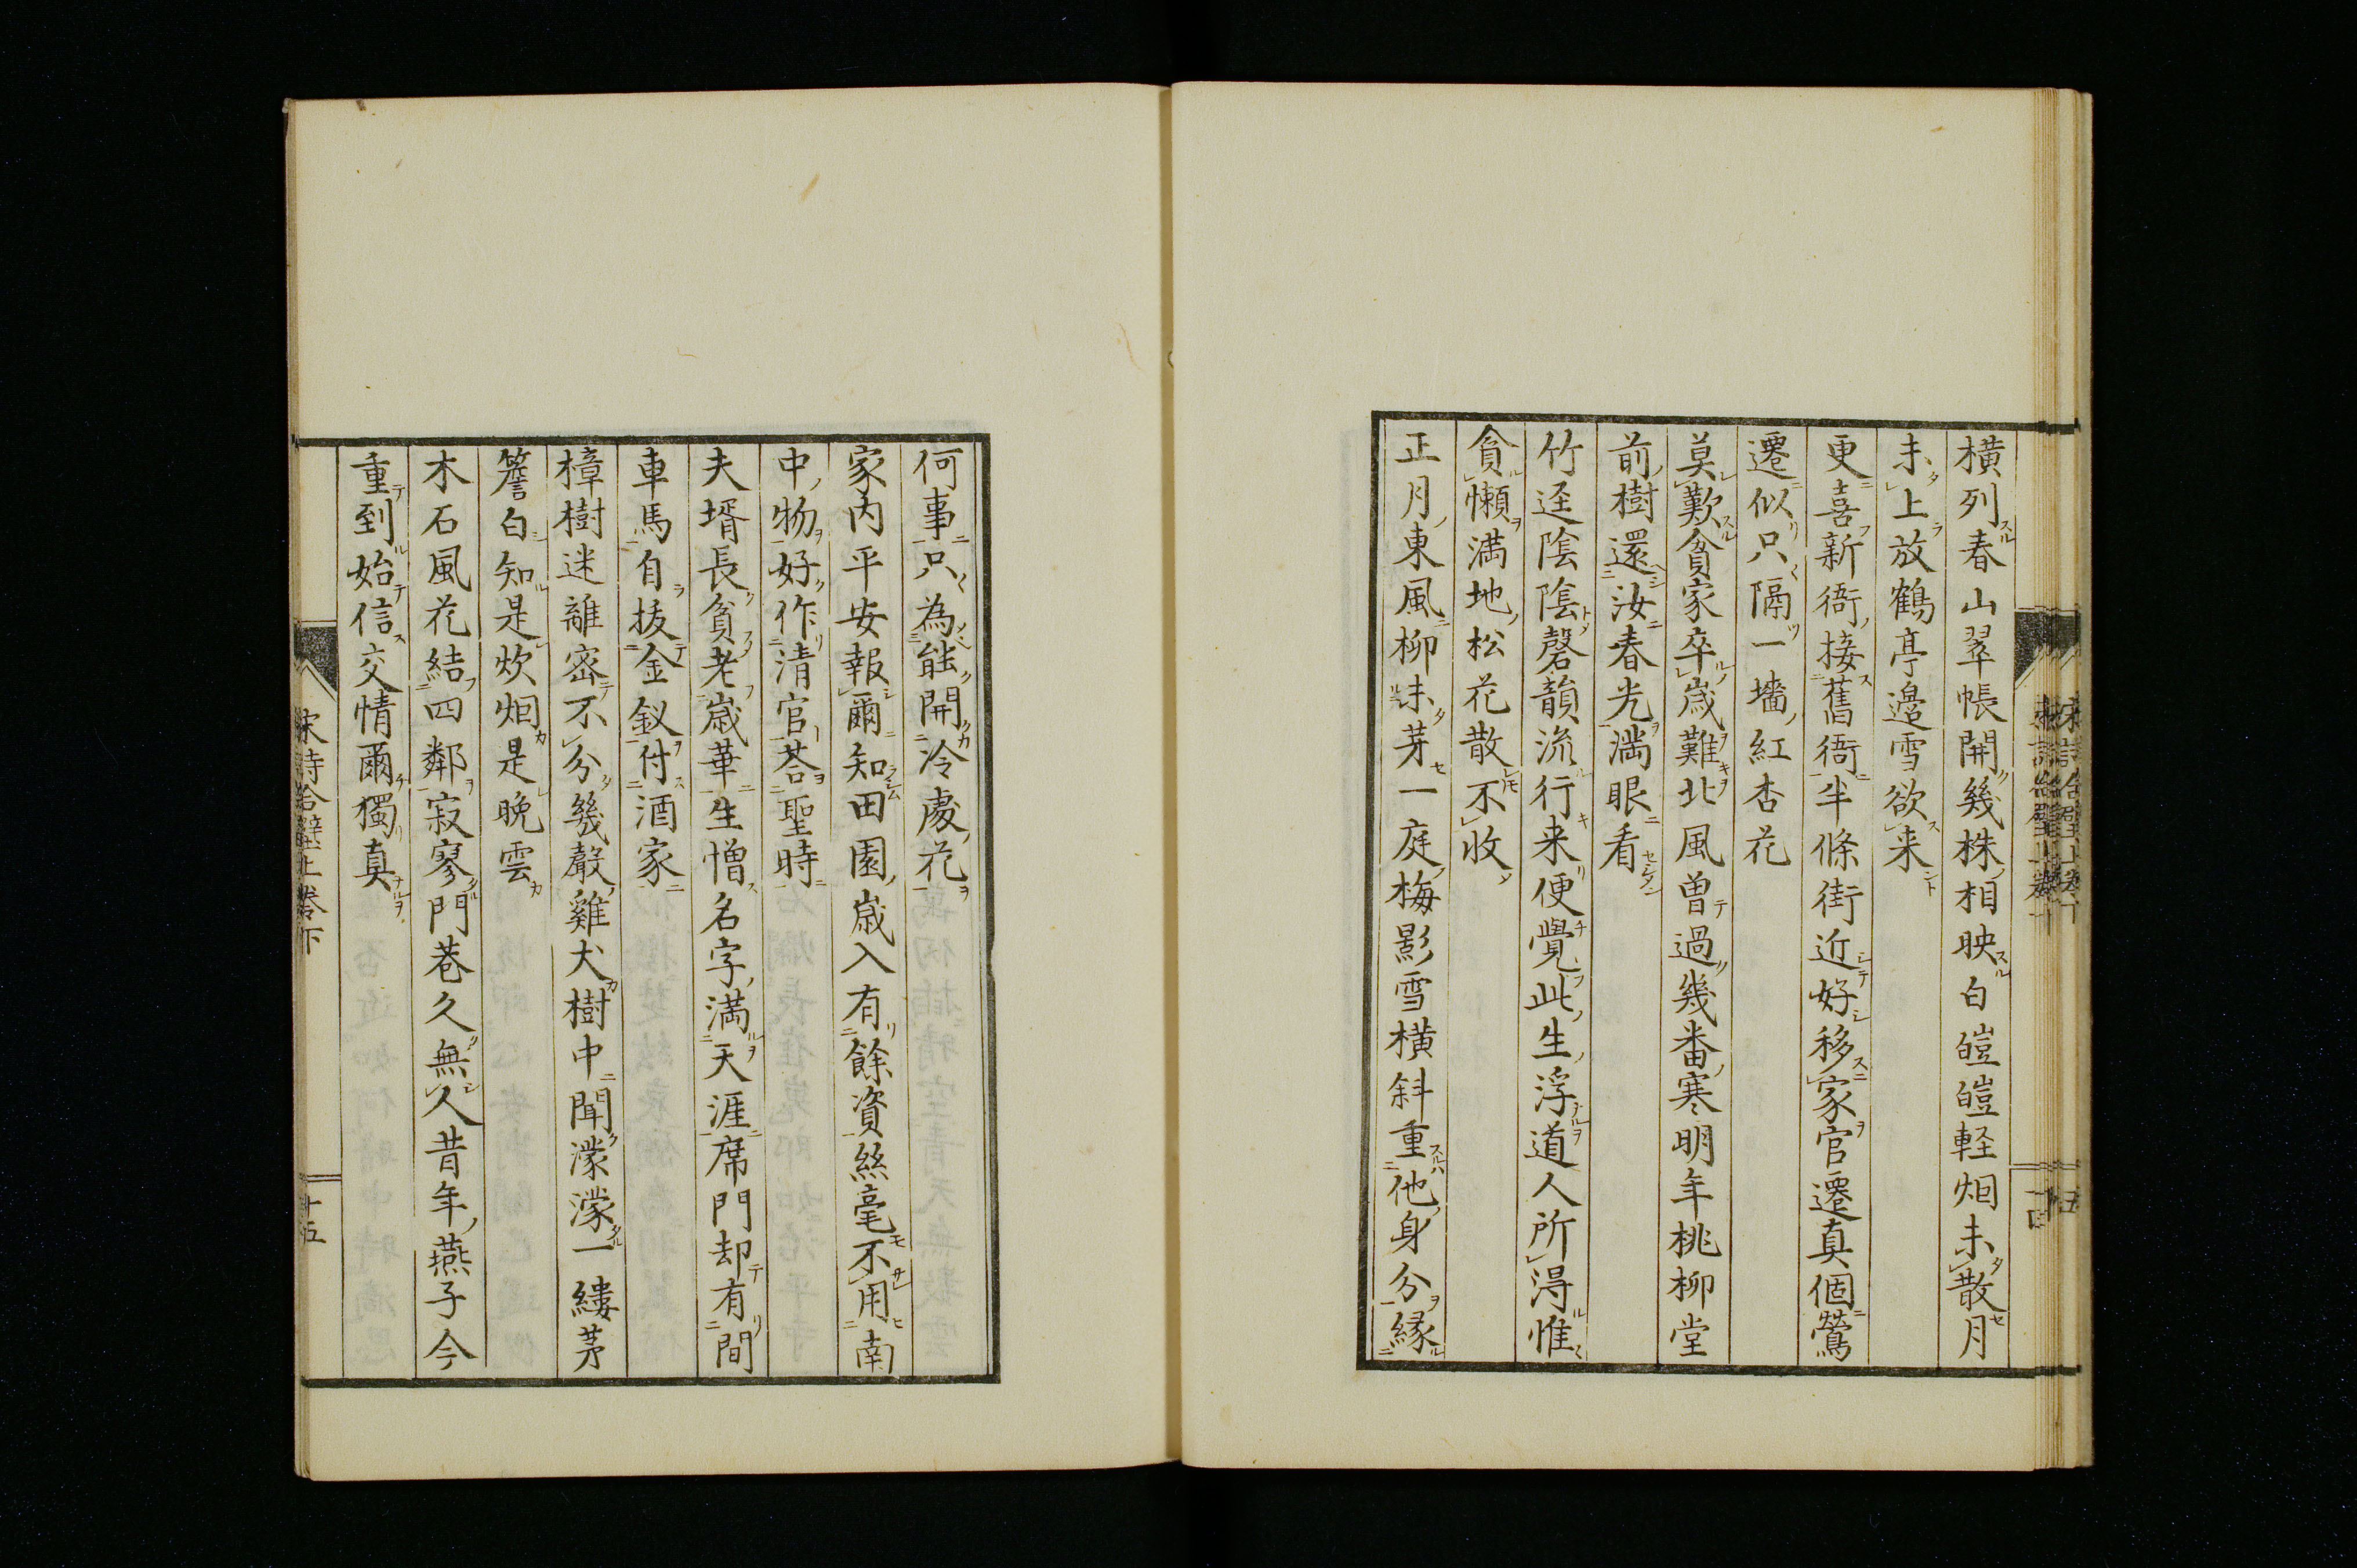 横列春山翠帳開幾株相映白皚皚軽烟未散月
未上放鶴亭邉雪欲来
更喜新衙接舊衙半條街近好移家官遷真個鶯
遷似只隔一墻紅杏花
莫歎貧家卒歳難北風曽過幾番寒明年桃柳堂
前樹還汝春光満眼看
竹迳陰陰磬韻流行来便覺此生浮道人所得惟
貧懶満地松花散不収
正月東風柳未芽一庭梅影雪横斜重他身分縁
何事只為能開冷處花
家内平安報爾知田園歳入有餘資絲毫不用南
中物好作清官荅聖時
夫壻長貧老歳華生憎名字満天涯席門却有間
車馬自抜金釵付酒家
樟樹迷離密不分幾聲雞犬樹中聞濛濛一縷茅
簷白知是炊烟是晩雲
木石風花結四鄰寂寥門巷久無人昔年燕子今
重到始信交情爾獨真
宋詩合璧上巻下
十五